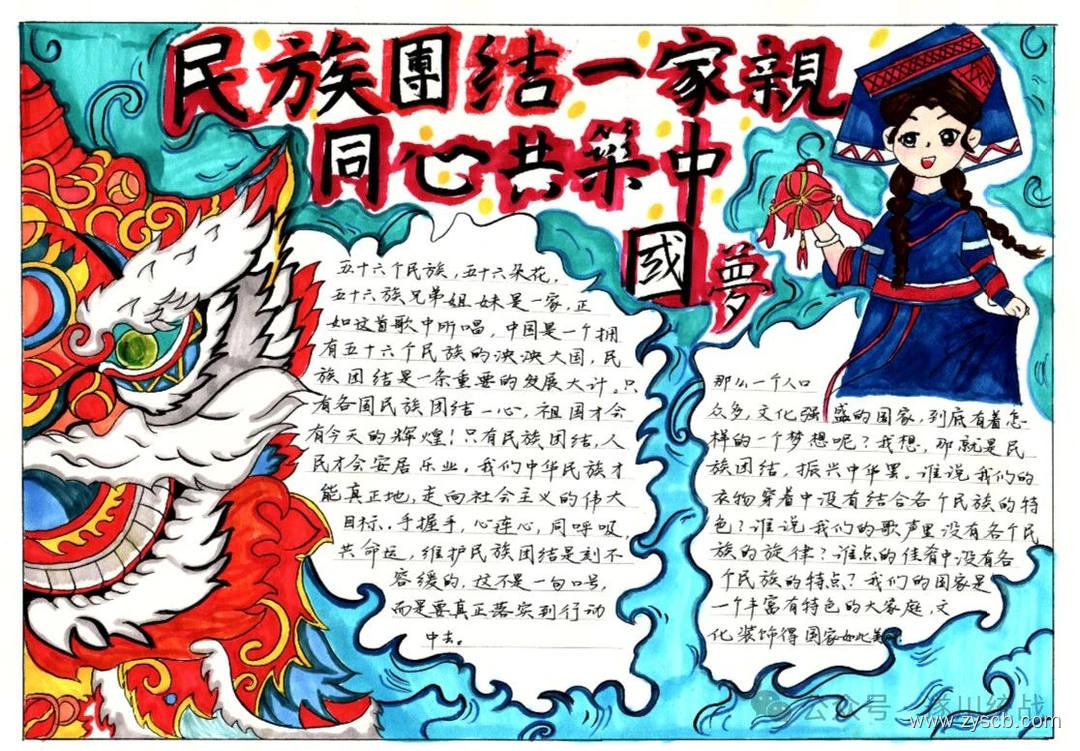 民族團结一家親
同心共築中
國夢
五十六个民族，五十六朵花，
五十六族兄弟姐妹是一家，正
如这首歌中所唱，中国是一个拥
有五十六个民族的泱泱大国，民
族团结是一条重要的发展大计。只
有各国民族团结一心，祖国才会
有今天的辉煌！只有民族团结，人
民才会安居乐业。我们中华民族才
能真正地，走向社会主义的伟大
目标。手握手，心连心，同呼吸，
共命运，维护民族团结是刻不
容缓的，这不是一句口号，
而是要真正落实到行动
中去。
那么一个人口
众多，文化强盛的国家，到底有着怎
样的一个梦想呢？我想，那就是民
族团结，振兴中华罢。谁说我们的
衣物穿着中没有结合各个民族的特
色？谁说我们的歌声里没有各个民
族的旋律？谁点的佳肴中没有各
个民族的特点？我们的国家是
一个丰富有特色的大家庭，文
化装饰得国家如此美
公众号 遂川统战
www.zyscb.com